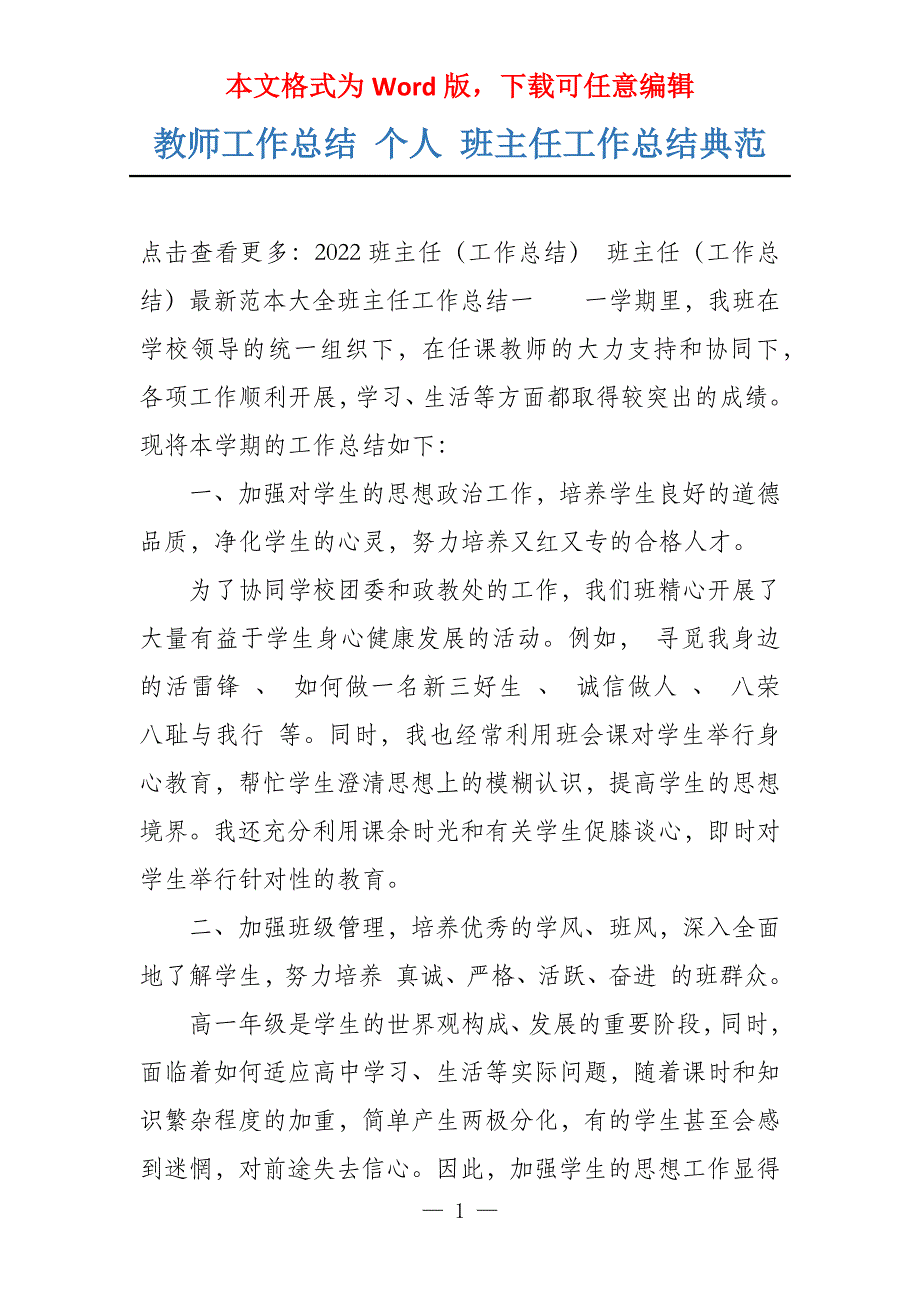 本文格式为 Word 版，下载可任意编辑
教师工作总结 个人 班主任工作总结典范
点击查看更多：2022 班主任（工作总结） 班主任（工作总
结）最新范本大全班主任工作总结一　　一学期里，我班在
学校领导的统一组织下，在任课教师的大力支持和协同下，
各项工作顺利开展，学习、生活等方面都取得较突出的成绩。
现将本学期的工作总结如下：
一、加强对学生的思想政治工作，培养学生良好的道德
品质，净化学生的心灵，努力培养又红又专的合格人才。
为了协同学校团委和政教处的工作，我们班精心开展了
大量有益于学生身心健康发展的活动。例如， 寻觅我身边
的活雷锋 、 如何做一名新三好生 、 诚信做人 、 八荣
八耻与我行 等。同时，我也经常利用班会课对学生举行身
心教育，帮忙学生澄清思想上的模糊认识，提高学生的思想
境界。我还充分利用课余时光和有关学生促膝谈心，即时对
学生举行针对性的教育。
二、加强班级管理，培养优秀的学风、班风，深入全面
地了解学生，努力培养 真诚、严格、活跃、奋进 的班群众。
高一年级是学生的世界观构成、发展的重要阶段，同时，
面临着如何适应高中学习、生活等实际问题，随着课时和知
识繁杂程度的加重，简单产生两极分化，有的学生甚至会感
到迷惘，对前途失去信心。因此，加强学生的思想工作显得
— 1 —